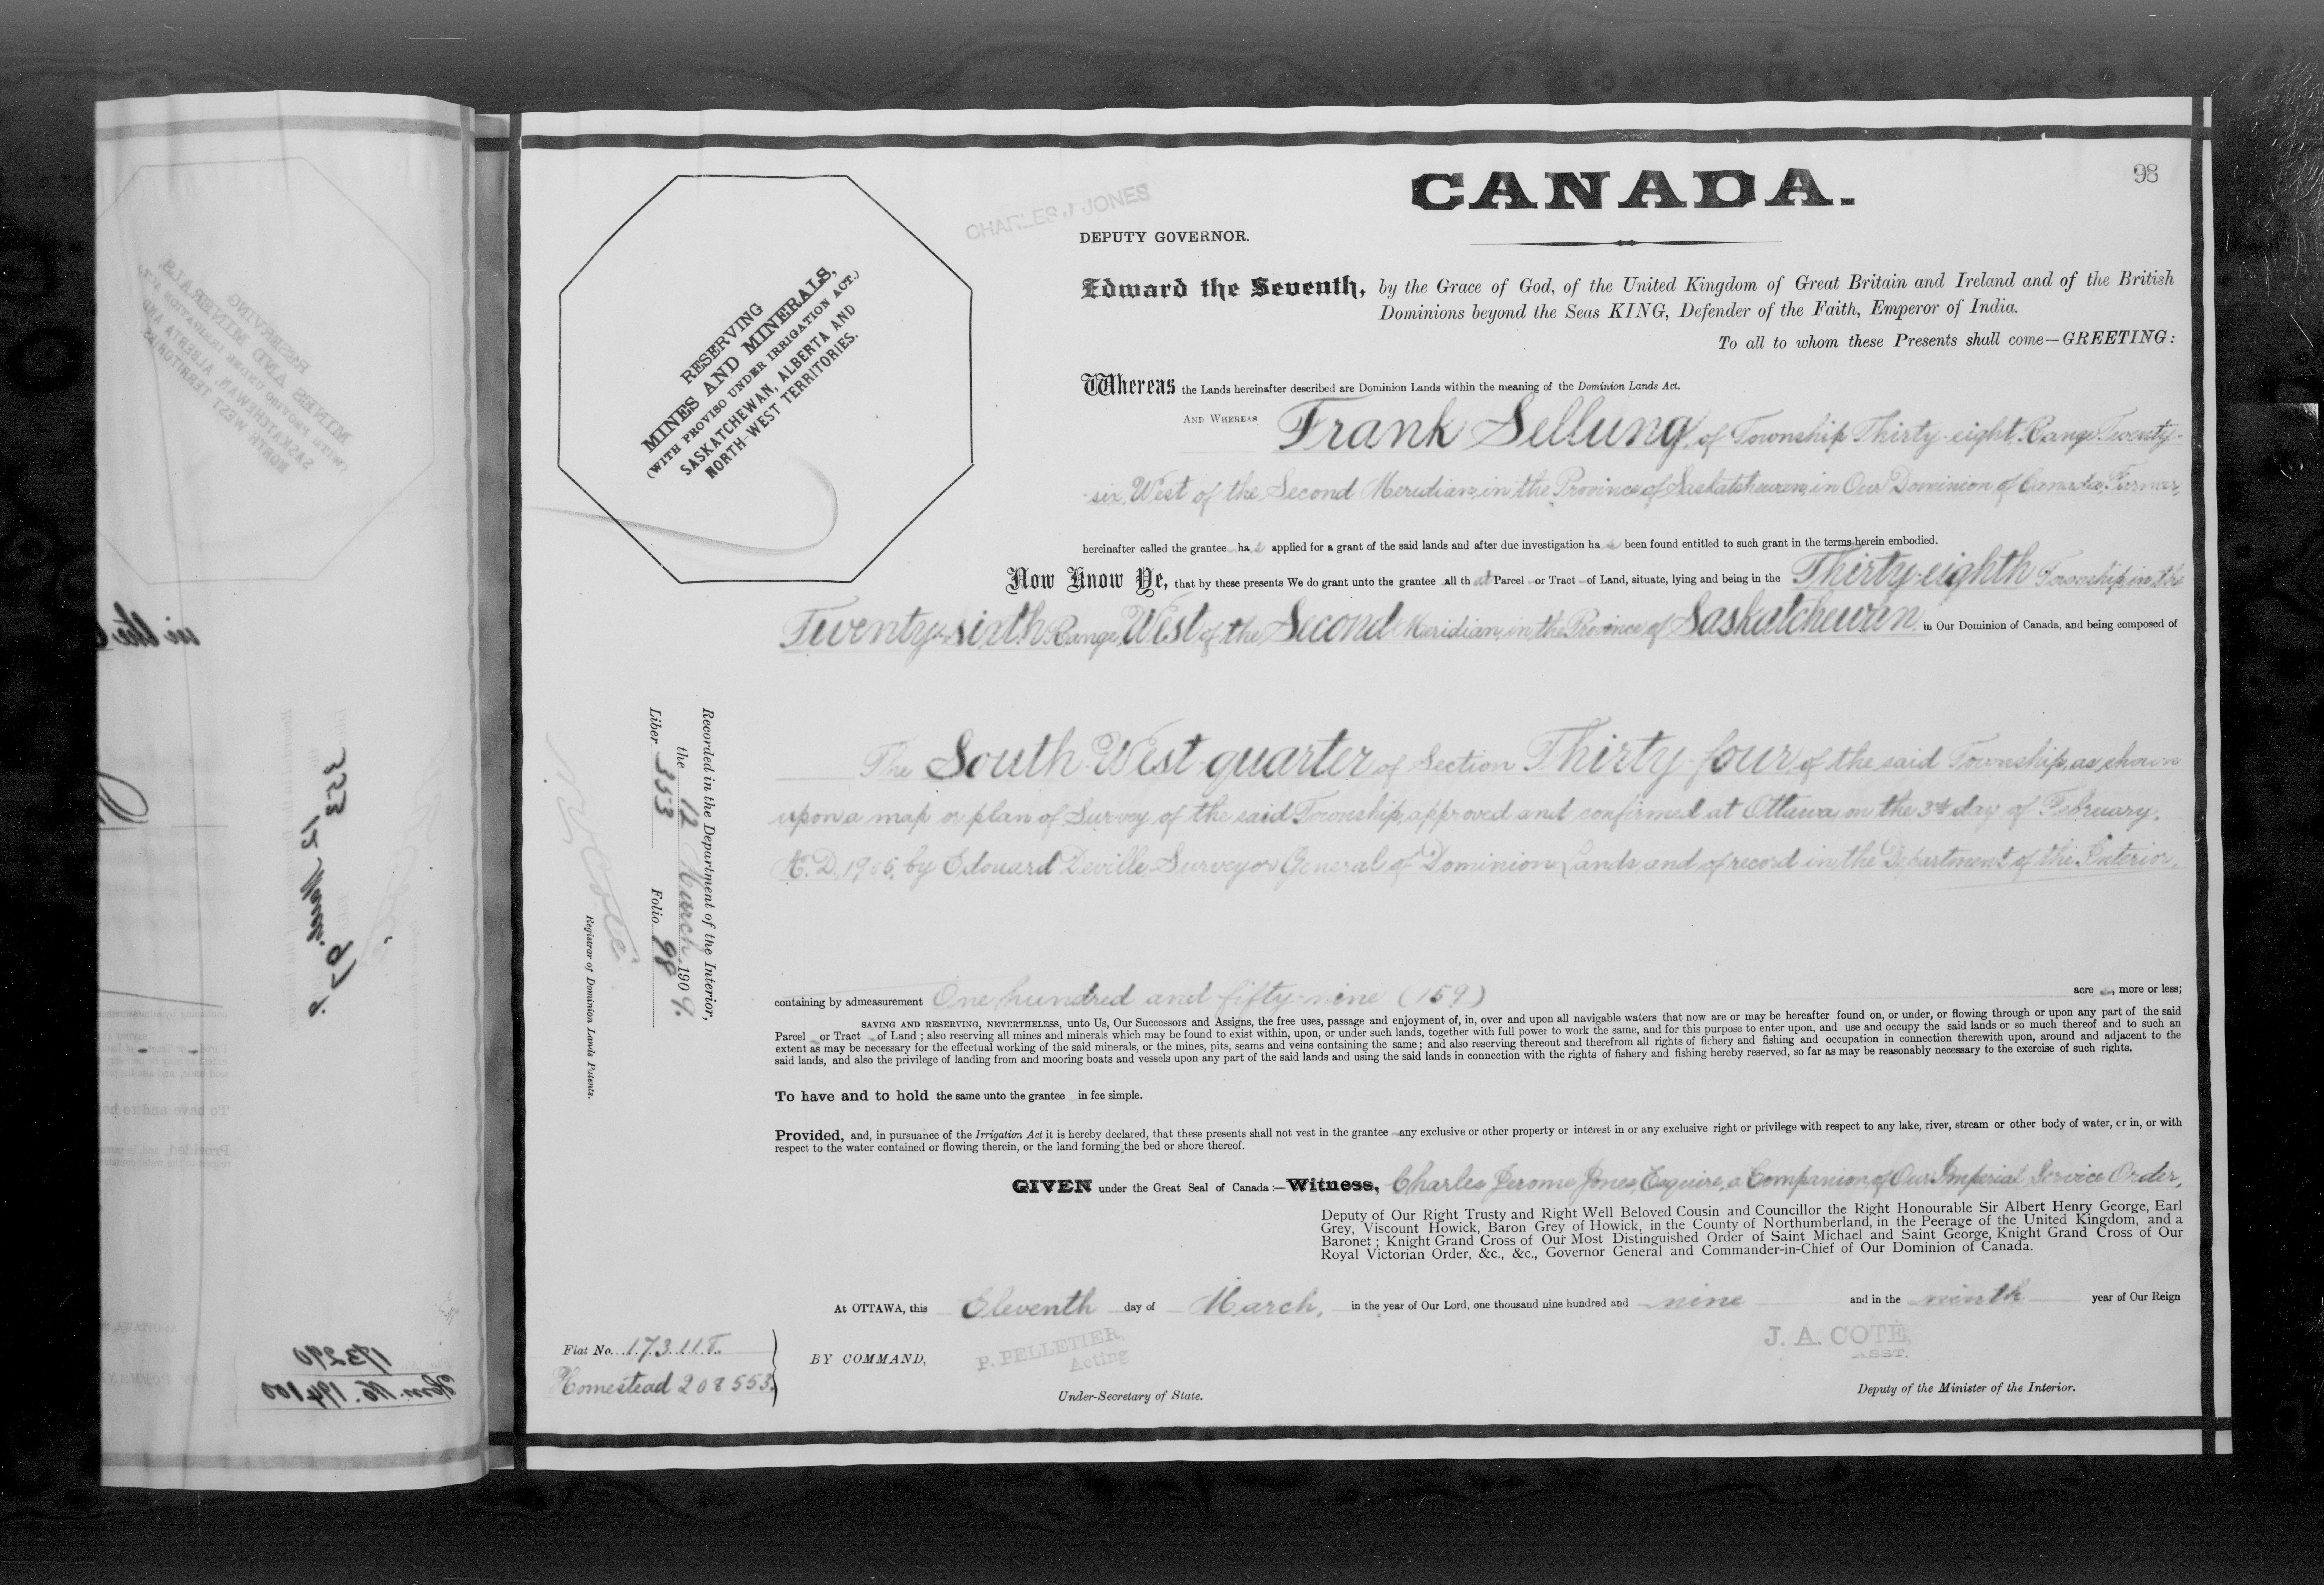 98
CANADA.
CHARLES J JONES
DEPUTY GOVERNOR.
RESERVING
MINES AND MINERALS,
(WITH PROVISO UNDER IRRIGATION ACT.)
SASKATCHEWAN, ALBERTA AND
NORTH-WEST TERRITORIES.
Edward the Seventh, by the Grace of God, of the United Kingdom of Great Britain and Ireland and of the British
Dominions beyond the Seas KING, Defender of the Faith, Emperor of India.
To all to whom these Presents shall come—GREETING:
Whereas the Lands hereinafter described are Dominion Lands within the meaning of the Dominion Lands Act.
AND WHEREAS Frank Sellung, of Township Thirty-eight Range Twenty-
six, West of the Second Meridian, in the Province of Saskatchewan, in Our Dominion of Canada, Farmer,
hereinafter called the grantee has applied for a grant of the said lands and after due investigation has been found entitled to such grant in the terms herein embodied.
Now Know Ye, that by these presents We do grant unto the grantee all that Parcel or Tract of Land, situate, lying and being in the Thirty-eighth Township in the
Twenty-sixth Range, West of the Second Meridian, in the Province of Saskatchewan, in Our Dominion of Canada, and being composed of
The South West quarter of Section Thirty-four, of the said Township, as shown
upon a map or plan of Survey of the said Township, approved and confirmed at Ottawa, on the 3rd day of February,
A.D. 1905, by Edouard Deville Surveyor General of Dominion Lands, and of record in the Department of the Interior,
Recorded in the Department of the Interior,
the 12 March, 1909.
Liber 353 Folio 98
Registrar of Dominion Lands Patents.
containing by admeasurement One hundred and fifty-nine (159) acres, more or less;
SAVING AND RESERVING, NEVERTHELESS, unto Us, Our Successors and Assigns, the free uses, passage and enjoyment of, in, over and upon all navigable waters that now are or may be hereafter found on, or under, or flowing through or upon any part of the said
Parcel or Tract of Land; also reserving all mines and minerals which may be found to exist within, upon, or under such lands, together with full power to work the same, and for this purpose to enter upon, and use and occupy the said lands or so much thereof and to such an
extent as may be necessary for the effectual working of the said minerals, or the mines, pits, seams and veins containing the same; and also reserving thereout and therefrom all rights of fichery and fishing and occupation in connection therewith upon, around and adjacent to the
said lands, and also the privilege of landing from and mooring boats and vessels upon any part of the said lands and using the said lands in connection with the rights of fishery and fishing hereby reserved, so far as may be reasonably necessary to the exercise of such rights.
To have and to hold the same unto the grantee in fee simple.
Provided, and, in pursuance of the Irrigation Act it is hereby declared, that these presents shall not vest in the grantee any exclusive or other property or interest in or any exclusive right or privilege with respect to any lake, river, stream or other body of water, or in, or with
respect to the water contained or flowing therein, or the land forming the bed or shore thereof.
GIVEN under the Great Seal of Canada:—Witness, Charles Jerome Jones, Esquire, a Companion of Our Imperial Service Order,
Deputy of Our Right Trusty and Right Well Beloved Cousin and Councillor the Right Honourable Sir Albert Henry George, Earl
Grey, Viscount Howick, Baron Grey of Howick, in the County of Northumberland, in the Peerage of the United Kingdom, and a
Baronet; Knight Grand Cross of Our Most Distinguished Order of Saint Michael and Saint George, Knight Grand Cross of Our
Royal Victorian Order, &c., &c., Governor General and Commander-in-Chief of Our Dominion of Canada.
At OTTAWA, this Eleventh day of March, in the year of Our Lord, one thousand nine hundred and nine and in the ninth year of Our Reign
Fiat No. 173118.
Homestead 208553.
BY COMMAND,
P. PELLETIER,
Acting
Under-Secretary of State.
J. A. COTÉ,
ASST.
Deputy of the Minister of the Interior.